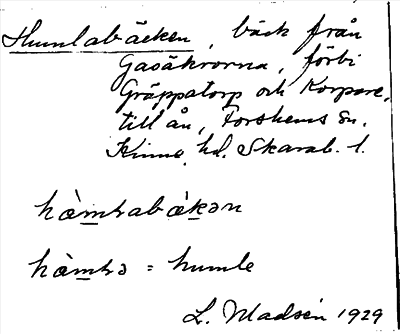 Humlabäcken, bäck från
Gasåkrorna, förbi
Gräppatorp och Korpare,
till ån, Forshems sn.
Kinne hd. Skarab. l.
hòm̲habæ̀k̲ən
hòm̲hə = humle
L. Madsén 1929